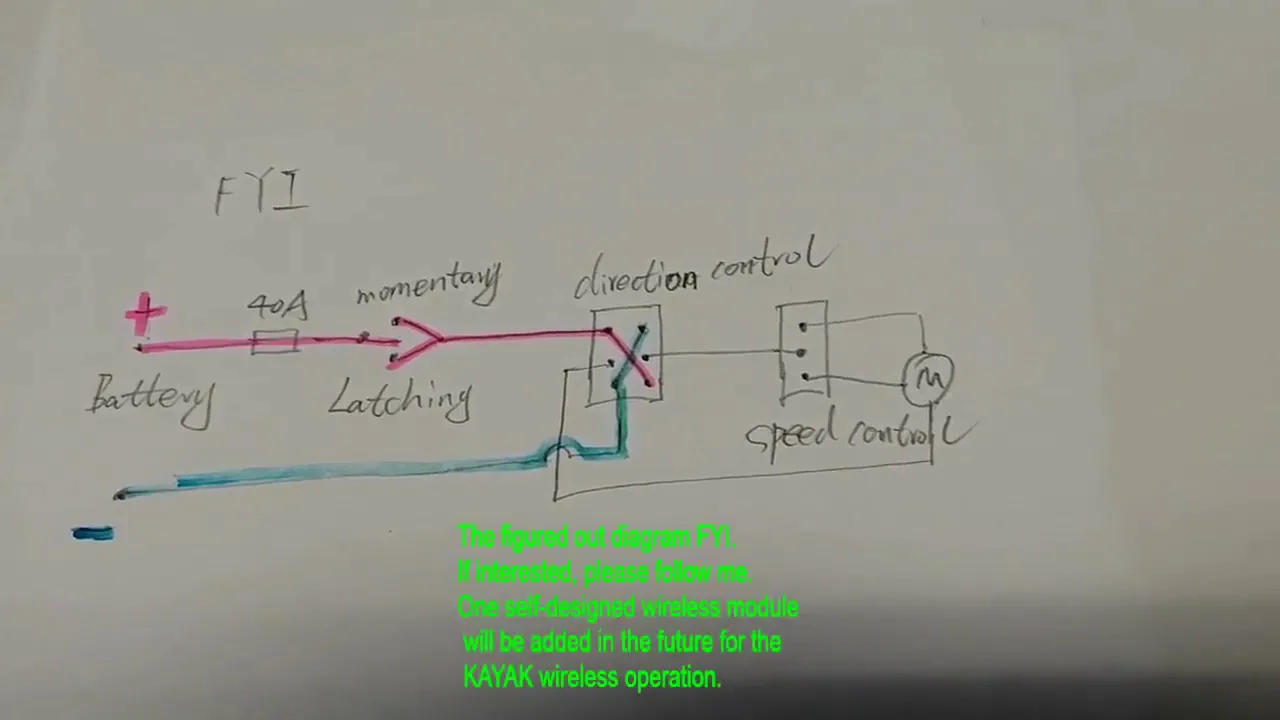 FYI
direction control
momentary
+
40A
Battery
Latching
M
speed control
-
The figured out diagram FYI.
If interested, please follow me.
One self-designed wireless module
will be added in the future for the
KAYAK wireless operation.